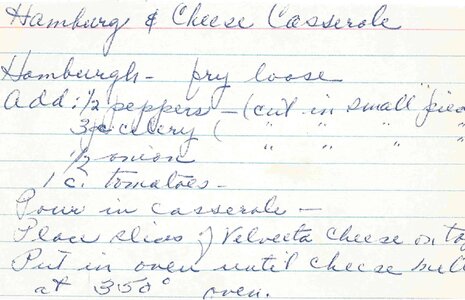 Hamburg & Cheese Casserole
Hamburgh - fry loose
Add: 1/2 peppers - (cut in small piec
celery ( " " " "
1/2 onion " " " "
1 c. tomatoes -
Pour in casserole -
Place slices of Velveeta Cheese on to
Put in oven until cheese melt
at 350° oven.